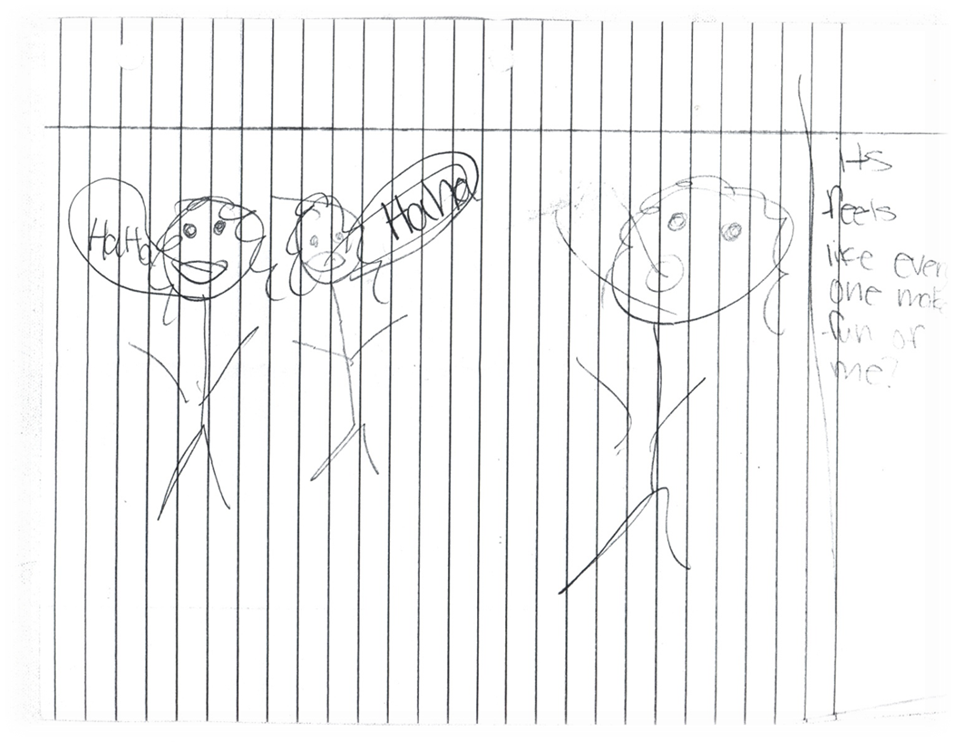 HaHa
Haha
Its
feels
like every
one make
fun of
me?